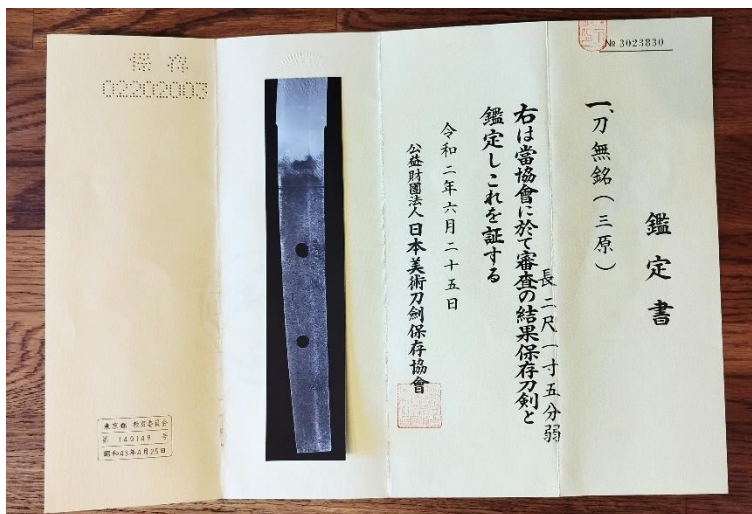 № 3023830
鑑定書
一、刀無銘(三原)
長二尺一寸五分弱
右は當協會に於て審査の結果保存刀剣と
鑑定しこれを証する
令和二年六月二十五日
公益財團法人日本美術刀劍保存協會
保存
02202003
東京都 教育委員会
第 140149 号
昭和43年4月25日